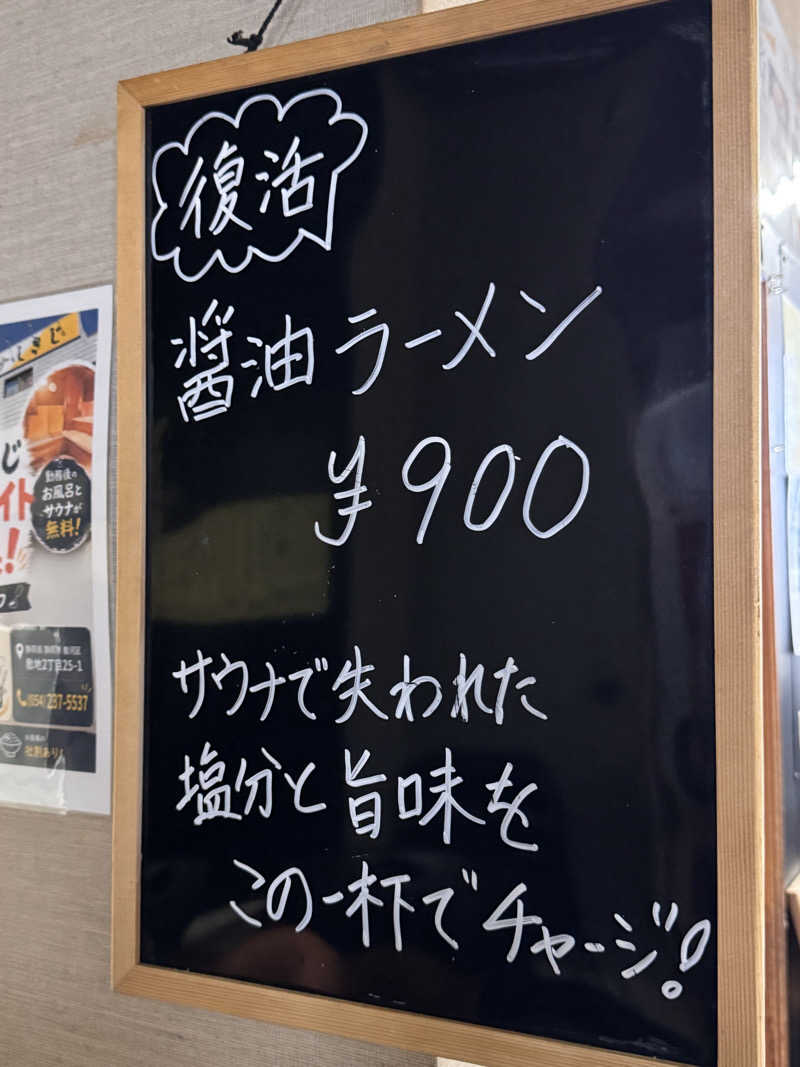 復活
醤油ラーメン
¥900
サウナで失われた
塩分と旨味を
この一杯でチャージ!
しきじ
じ
イト
勤務後の
お風呂と
サウナが
無料!
静岡県 静岡市 駿河区
敷地2丁目25-1
(054)237-5537
社割あり!